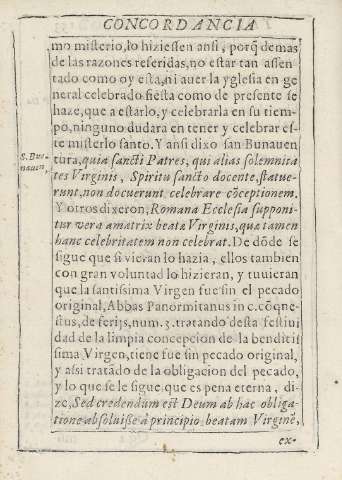 CONCORDANCIA
mo misterio, lo hiziessen ansi, porq̃ demas
de las razones referidas, no estar tan assen
tado como oy esta, ni auer la yglesia en ge
neral celebrado fiesta como de presente se
haze, que a estarlo, y celebrarla en su tiem-
po, ninguno dudara en tener y celebrar es-
te misterlo santo. Y ansi dixo san Bunauen
S. Bue-
nauen,
tura, quia sancti Patres, qui alias solemnita
tes Virginis, Spiritu sancto docente, statue-
runt, non docuerunt celebrare cõceptionem.
Y otros dixeron, Romana Ecclesia supponi-
tur vera amatrix beatæ Virginis, quæ tamen
hanc celebritatem non celebrat. De dõde se
sigue que si vieran lo hazia, ellos tambien
con gran voluntad lo hizieran, y tuuieran
que la santissima Virgen fue sin el pecado
original, Abbas Panormitanus in c. cõque-
stus, de ferijs, num. 3. tratando desta festiui
dad de la limpia concepcion de la benditis
sima Virgen, tiene fue sin pecado original,
y assi tratãdo de la obligacion del pecado,
y lo que se le sigue que es pena eterna, di-
ze, Sed credendum est Deum ab hac obliga-
tione absoluisse à principio beatam Virginẽ,
ex-